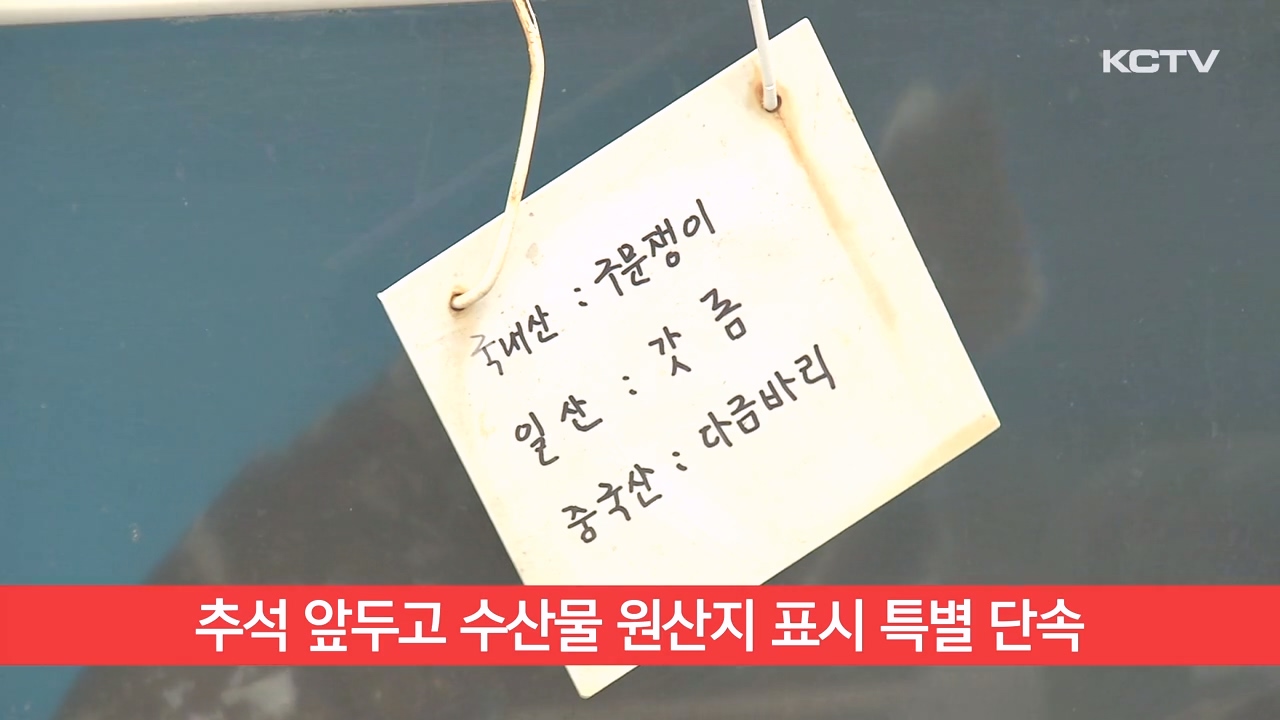 KCTV
국내산 : 구문쟁이
일산 : 갓돔
중국산 : 다금바리
추석 앞두고 수산물 원산지 표시 특별 단속